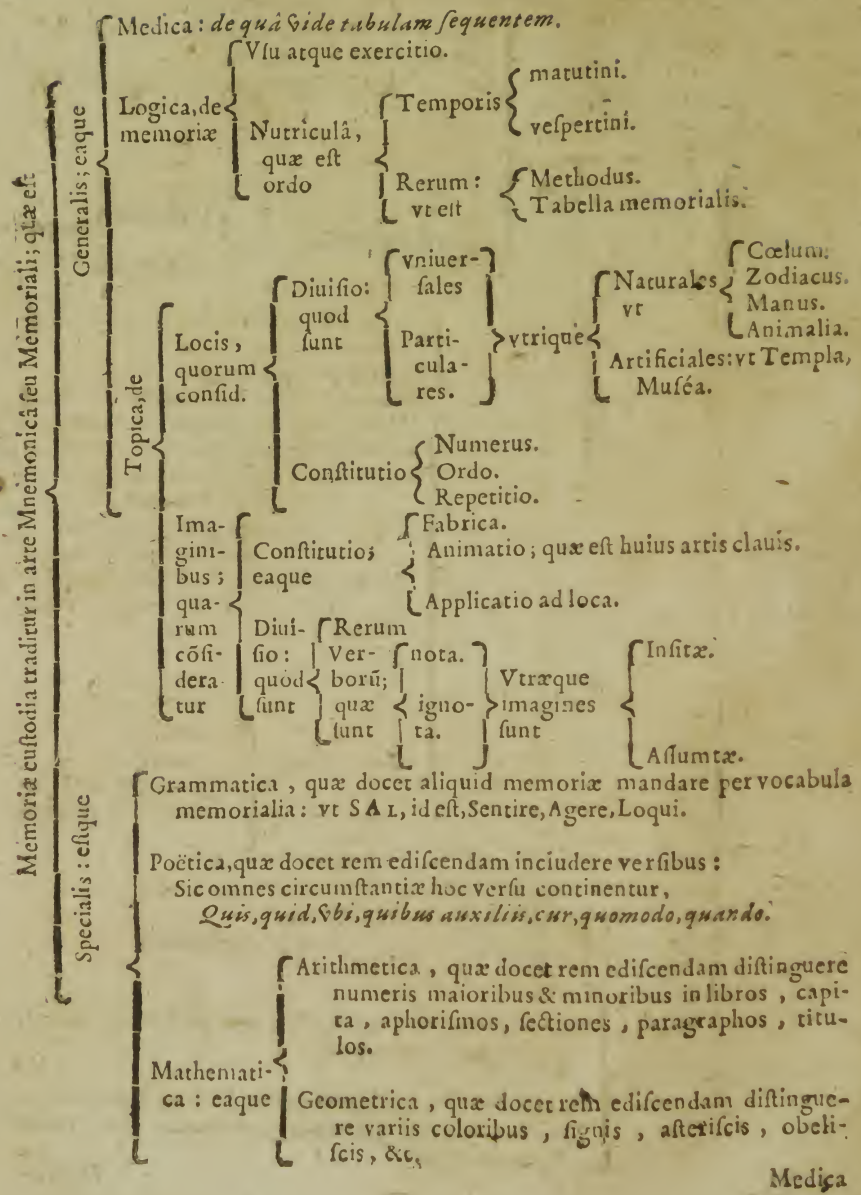 Memoriæ cuſtodia traditur in arte Mnemonicâ ſeu Memoriali; quæ eſt
Generalis; eaque
Medica: de quâ vide tabulam ſequentem.
Logica, de
memoriæ
Vſu atque exercitio.
Nutriculâ,
quæ eſt
ordo
Temporis
matutini.
veſpertini.
Rerum:
vt eſt
Methodus.
Tabella memorialis.
Topica, de
Locis,
quorum
conſid.
Diuiſio:
quod
ſunt
vniuer-
ſales
Parti-
cula-
res.
vtrique
Naturales
vt
Cœlum.
Zodiacus.
Manus.
Animalia.
Artificiales: vt Templa,
Muſéa.
Conſtitutio
Numerus.
Ordo.
Repetitio.
Ima-
gini-
bus;
qua-
rum
cõſi-
dera
tur
Conſtitutio;
eaque
Fabrica.
Animatio; quæ eſt huius artis clauis.
Applicatio ad loca.
Diui-
ſio:
quod
ſunt
Rerum
Ver-
borũ;
quæ
ſunt
nota.
igno-
ta.
Vtræque
imagines
ſunt
Inſitæ.
Aſſumtæ.
Specialis: eſique
Grammatica, quæ docet aliquid memoriæ mandare per vocabula
memorialia: vt SAL, id eſt, Sentire, Agere, Loqui.
Poëtica, quæ docet rem ediſcendam includere verſibus:
Sic omnes circumſtantiæ hoc verſu continentur,
Quis, quid, vbi, quibus auxiliis, cur, quomodo, quando.
Mathemati-
ca: eaque
Arithmetica, quæ docet rem ediſcendam diſtinguere
numeris maioribus & minoribus in libros, capi-
ta, aphoriſmos, ſectiones, paragraphos, titu-
los.
Geometrica, quæ docet rem ediſcendam diſtingue-
re variis coloribus, ſignis, aſteriſcis, obeli-
ſcis, &c.
Medica